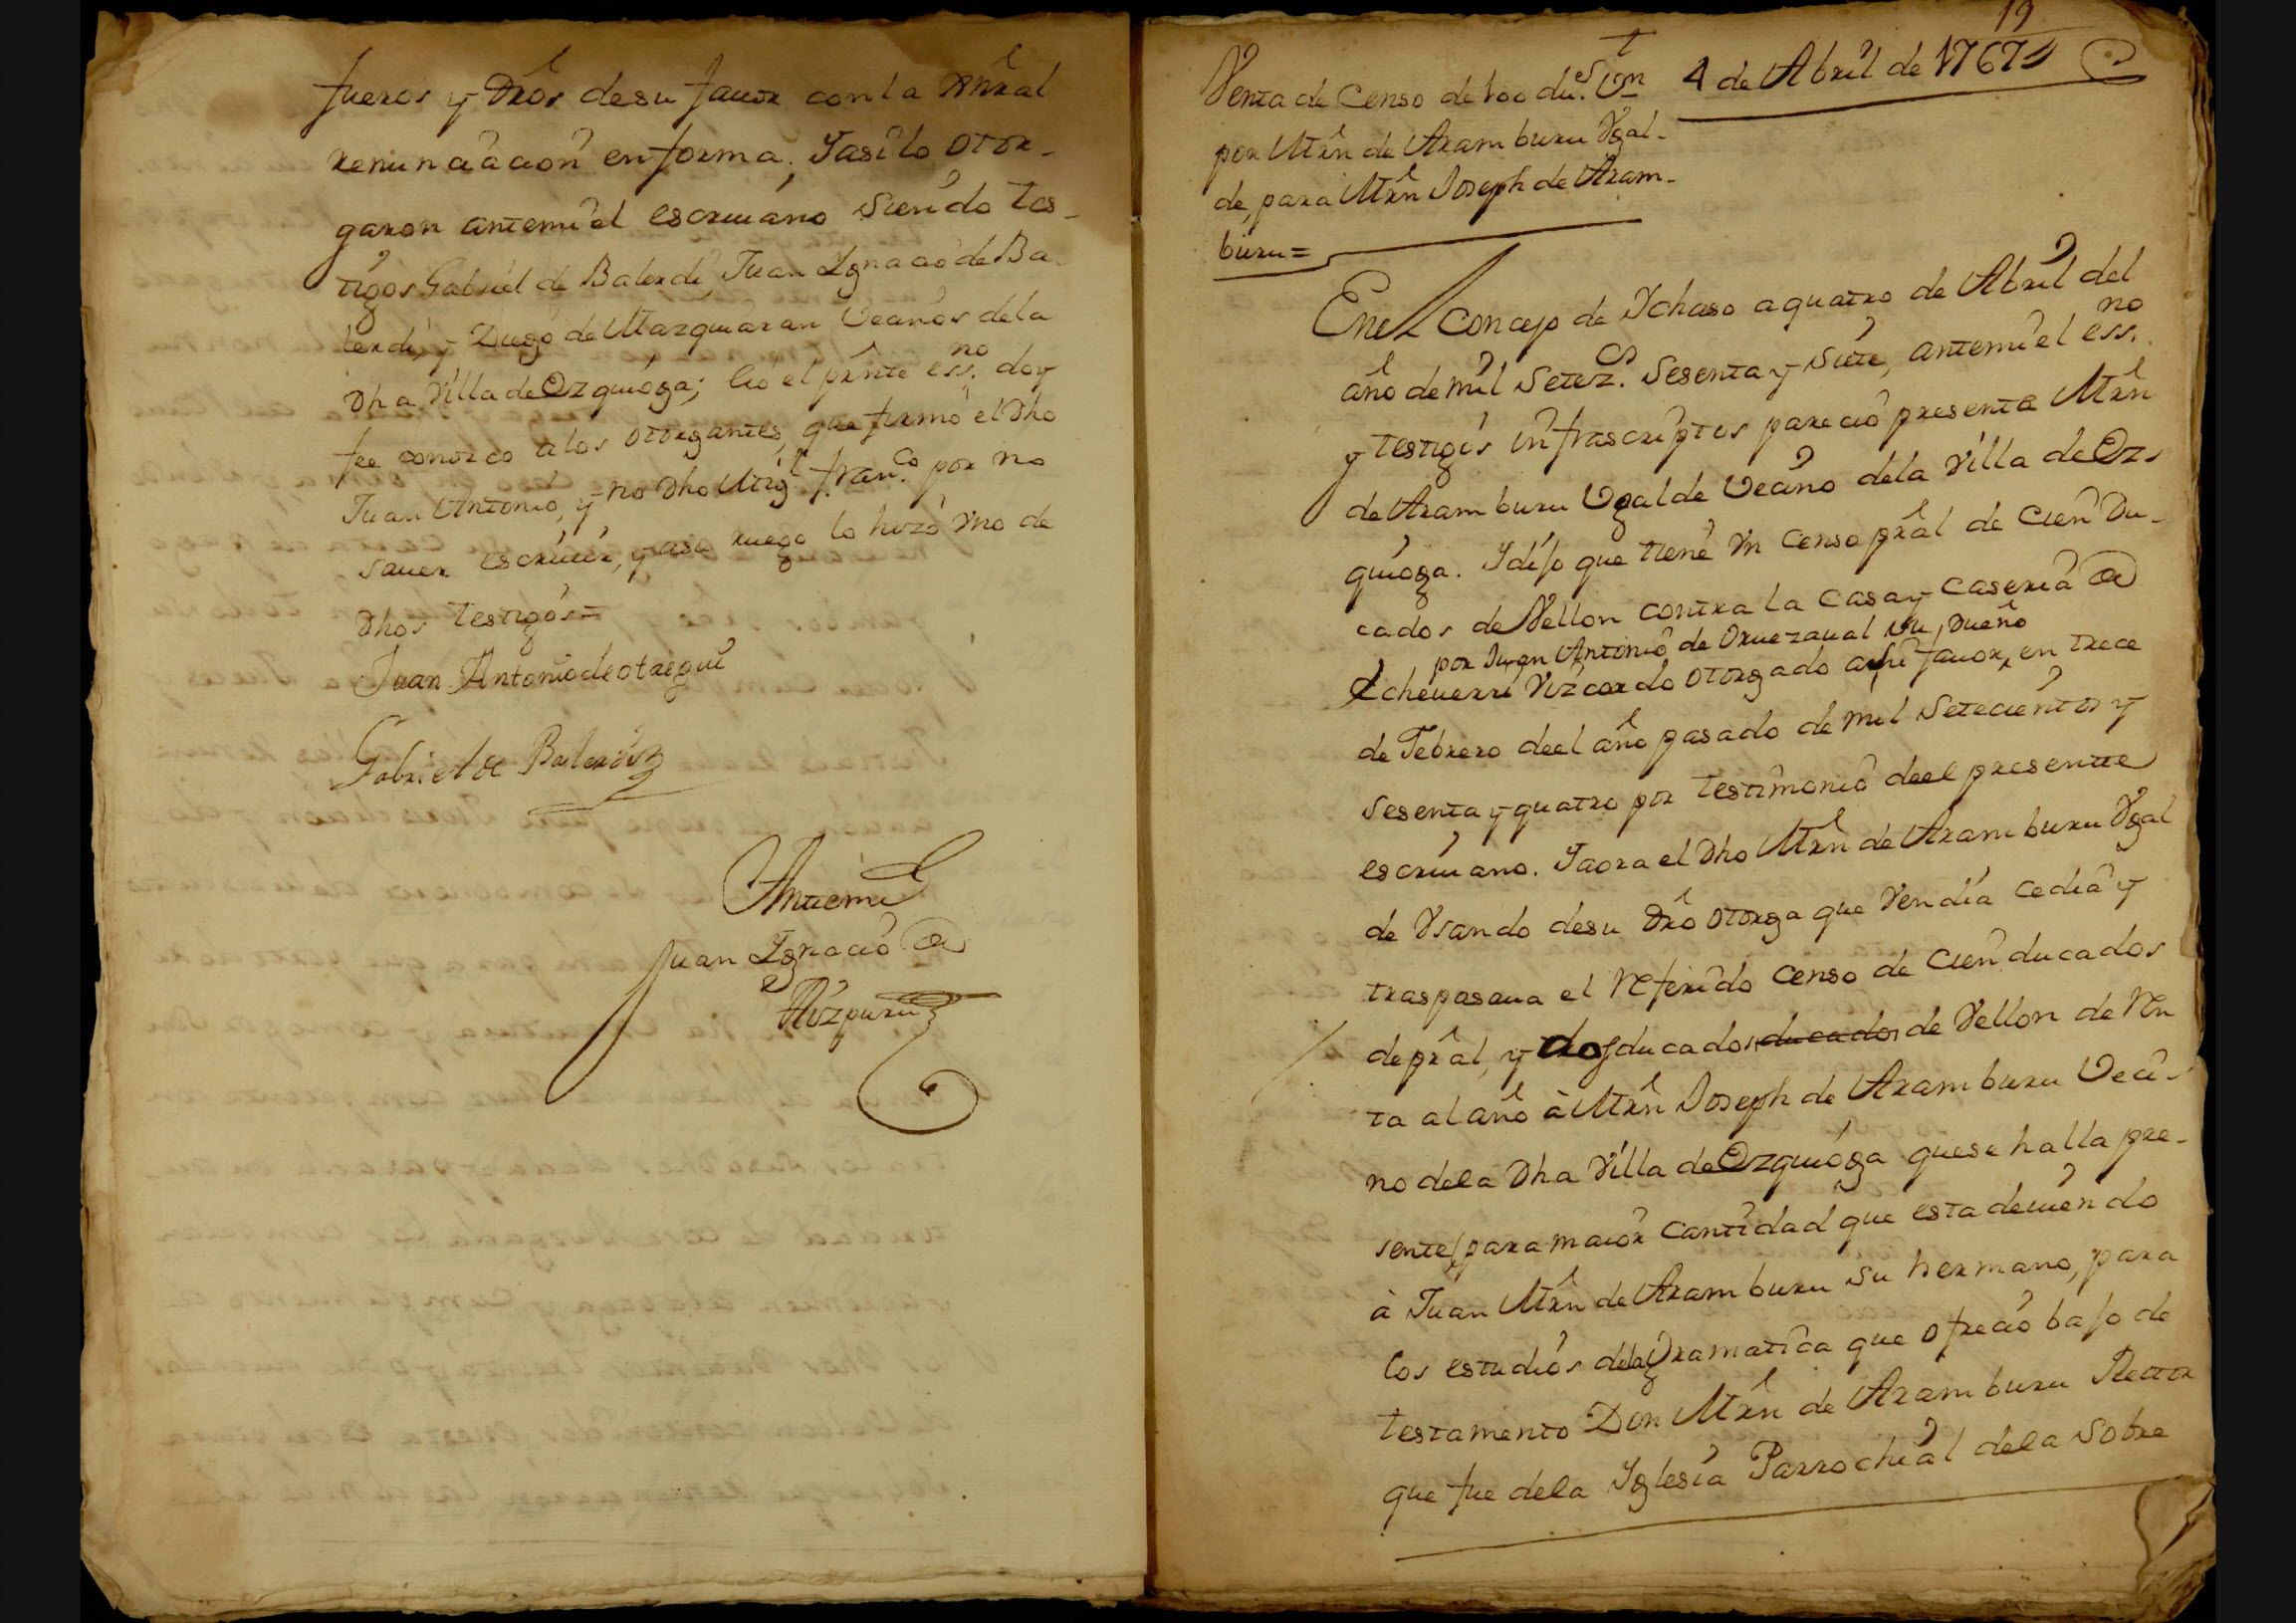 fueros y Dr̃os desu fauor con la Gn̂ral
renunciacion en forma. Y asi lo otor-
garon antemi el escriuano siendo tes-
tigos Gabriel de Balerdi, Juan Ygnacio de Ba-
lerdi, y Diego de Mazquiaran Vecinos dela
Dha Villa de Ozquioga; E io el prñte ess.no doy
fee conozco a los otorgantes, que firmó el Dho
Juan Antonio, y no Dho Mig.l Fran.co por no
sauer escriuir, y asu ruego lo hizo Vno de
Dhos testigos=
Juan Antonio de otaegui
Gabriel de Balerdi
Antemi
Juan Ygnacio de
Aizpuru
19
Venta de Censo de 100 du.s Von
por Mrñ de Aramburu Vgal-
de, para Mrñ Joseph de Aram-
buru=
4 de Abril de 1767
En el Concejo de Ychaso a quatro de Abril del
año de mil Setez.os Sesenta y Siete, antemi el ess.no
y testigos infrascriptos parecio presente Mrñ
de Aramburu Vgalde Vecino dela Villa de Oz-
quioga. Y dijo que tiene Vn Censo prãl de Cien Du-
cados de Vellon contra la Casa y Caseria de
por Juan Antonio de Oruezaual su Dueño
Echeuerri Vizcardo otorgado a su fauor, en trece
de Febrero deel año pasado de mil Setecientos y
Sesenta y quatro por testimonio deel presente
escriuano. Y aora el Dho Mrñ de Aramburu Vgal
de Vsando desu Dr̃o otorga que Vendia cedia y
traspasaua el Referido Censo de Cien ducados
de prãl, y dos ducados ducados de Vellon de Ren
ta al año à Mrñ Joseph de Aramburu Veci-
no dela Dha Villa de Ozquioga que se halla pre-
sente, para maior Cantidad que esta deuiendo
à Juan Mrñ de Aramburu su hermano, para
los estudios dela Gramatica que ofrecio bajo de
testamento Don Mrñ de Aramburu Rector
que fue dela Yglesia Parrochial dela Sobre